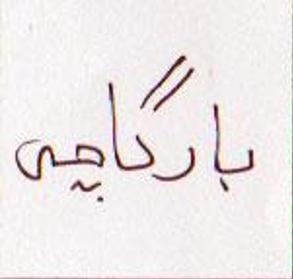 بارگاچی